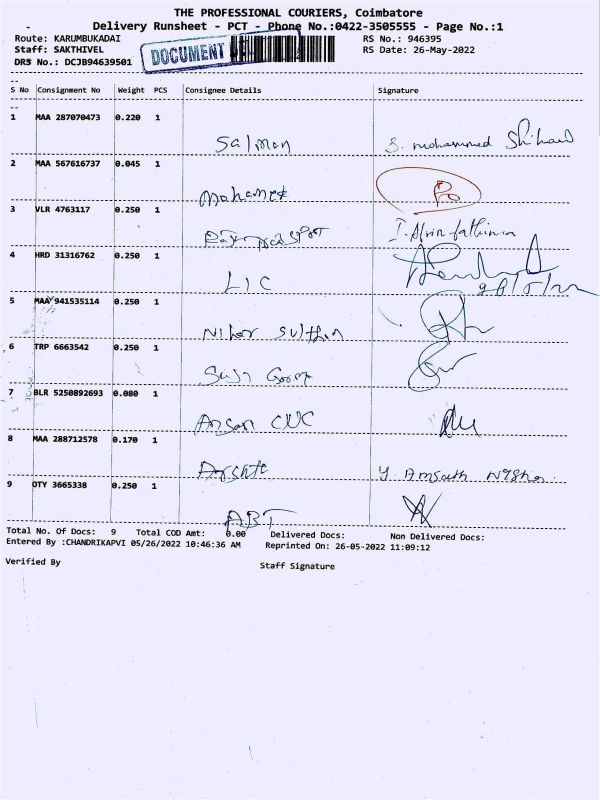 THE PROFESSIONAL COURIERS, Coimbatore
- Delivery Runsheet - PCT - Phone No.:0422-3505555 - Page No.:1
Route: KARUMBUKADAI RS No.: 946395
Staff: SAKTHIVEL DOCUMENT RS Date: 26-May-2022
DRS No.: DCJB94639501
S No Consignment No Weight PCS Consignee Details Signature
1 MAA 287070473 0.220 1
Salman S. mohammed
2 MAA 567616737 0.045 1
Mohamed
3 VLR 4763117 0.250 1
I. Afrin fathima
4 HRD 31316762 0.250 1
LIC
5 MAA 941535114 0.250 1
Niher Sulthin
6 TRP 6663542 0.250 1
7 BLR 5250892693 0.080 1
Ansari
8 MAA 288712578 0.170 1
9 OTY 3665338 0.250 1
ABT
Total No. Of Docs: 9 Total COD Amt: 0.00 Delivered Docs: Non Delivered Docs:
Entered By :CHANDRIKAPVI 05/26/2022 10:46:36 AM Reprinted On: 26-05-2022 11:09:12
Verified By Staff Signature